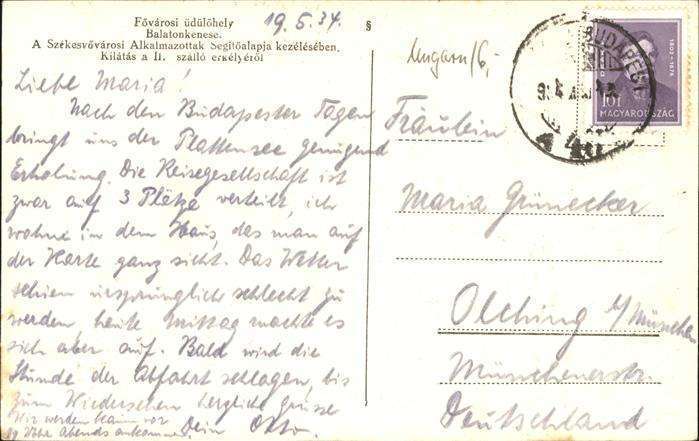 Fővárosi üdülőhely
Balatonkenese.
A Székesvővárosi Alkalmazottak Segítőalapja kezelésében.
Kilátás a II. szálló erkélyéről
19.5.34.
§
Liebe Maria!
Nach den Budapester Tagen
bringt uns der Plattensee genügend
Erholung. Die Reisegesellschaft ist
zwar auf 3 Plätze verteilt, ich
wohne in dem Haus, das man auf
der Karte ganz sieht. Das Wetter
schien ursprünglich schlecht zu
werden, heute mittag machte es
sich aber auf. Bald wird die
Stunde der Abfahrt schlagen, bis
zum Wiedersehen herzliche Grüsse
Dein Otto.
Wir werden kaum vor
Uhr Abends ankommen.
Ungarn/6,-
BUDAPEST
101
MAGYARORSZÁG
Fräulein
Maria Grünecker
Olching b/München
Münchenerstr.
Deutschland